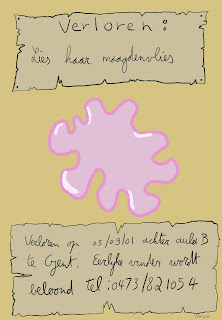 Verloren:
Lies haar maagdenvlies
Verloren op 05/09/01 achter aula B
te Gent. Eerlijke vinder wordt
beloond tel:0473/821054